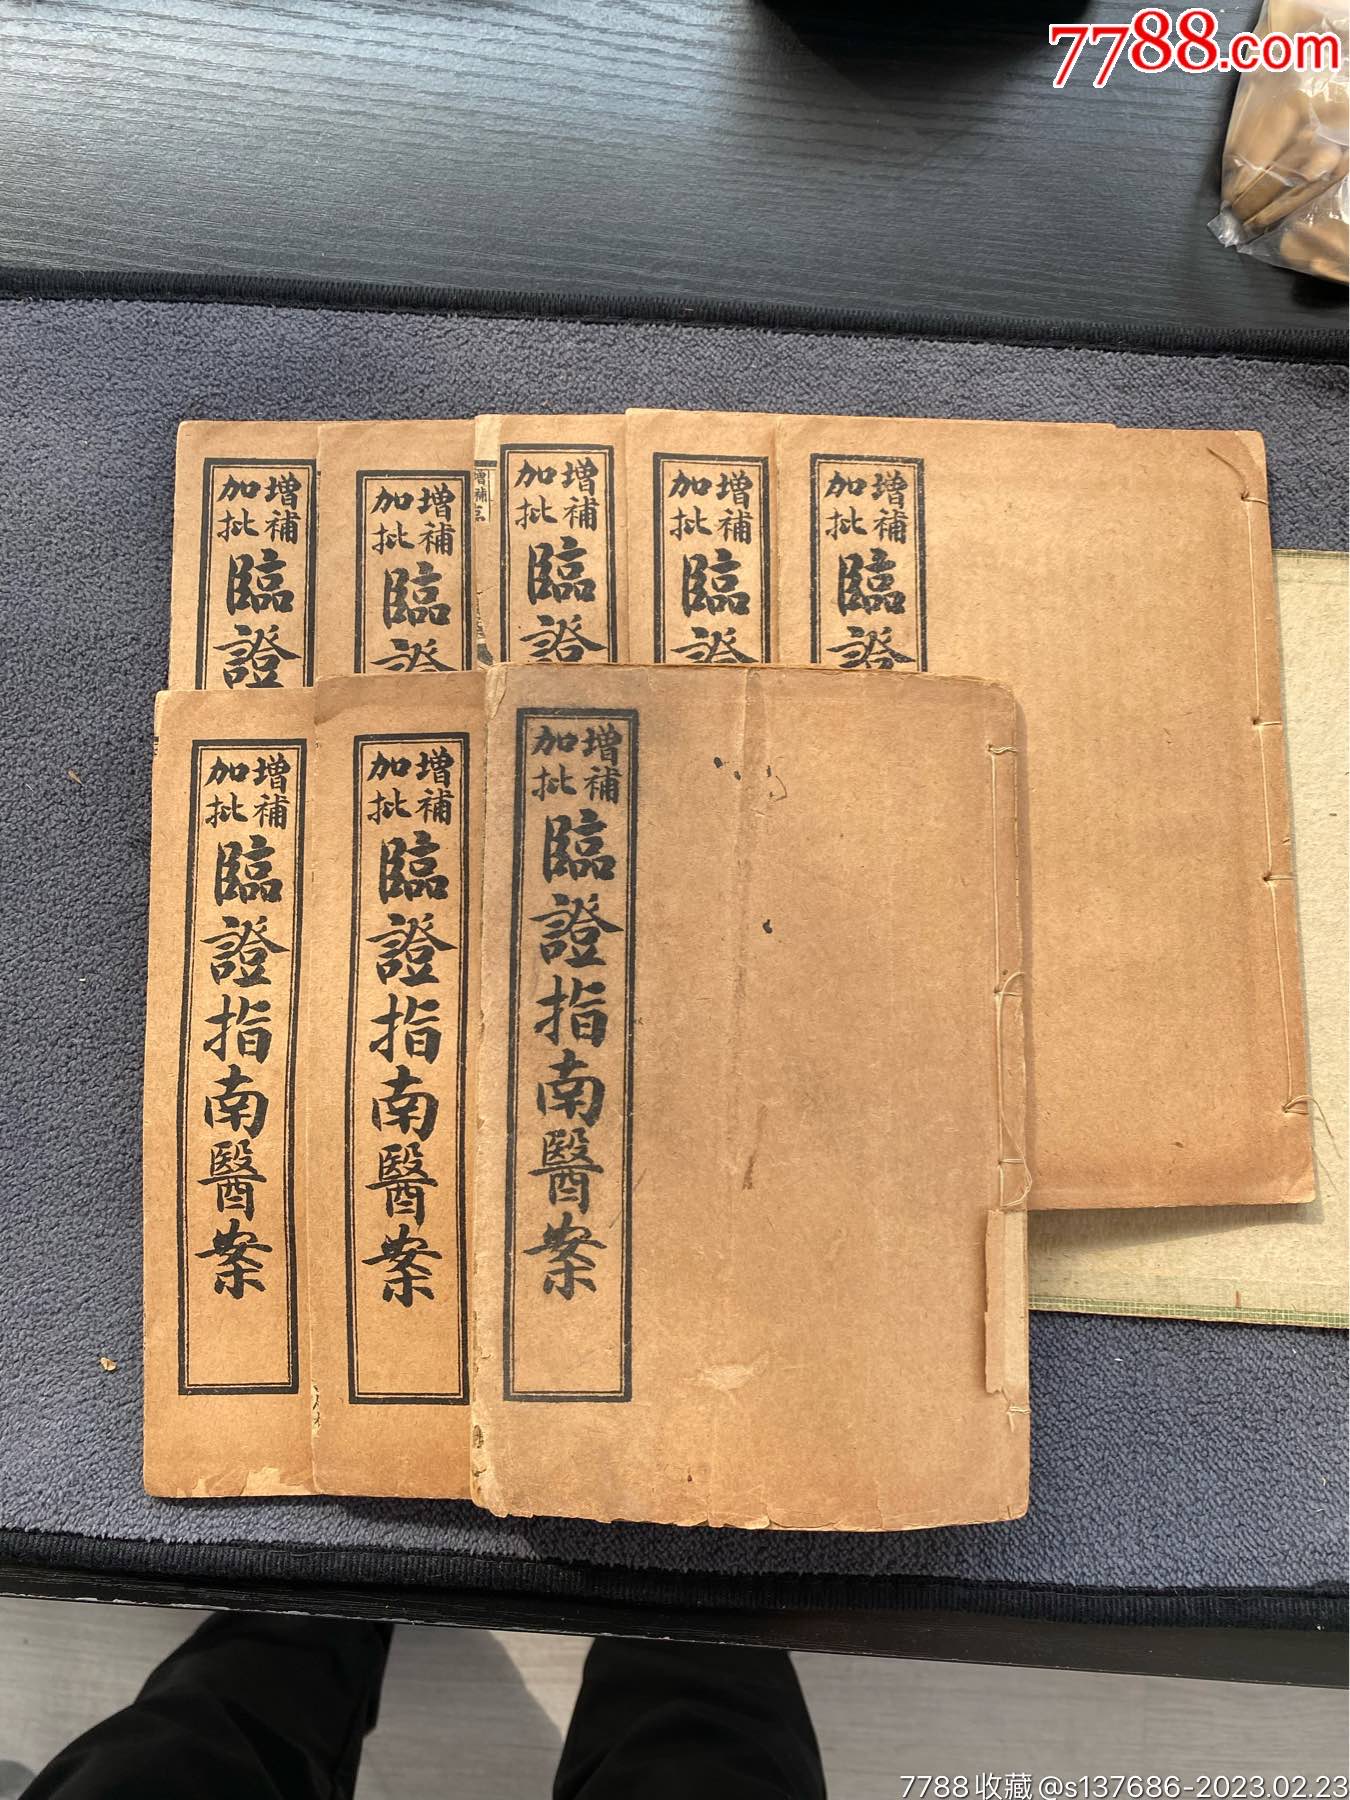 7788.com
增補
加批
臨證
增補
加批
臨證
增補三
增補
加批
臨證
增補
加批
臨證
增補
加批
臨證
增補
加批
臨證指南醫案
增補
加批
臨證指南醫案
增補
加批
臨證指南醫案
7788收藏@s137686-2023.02.23